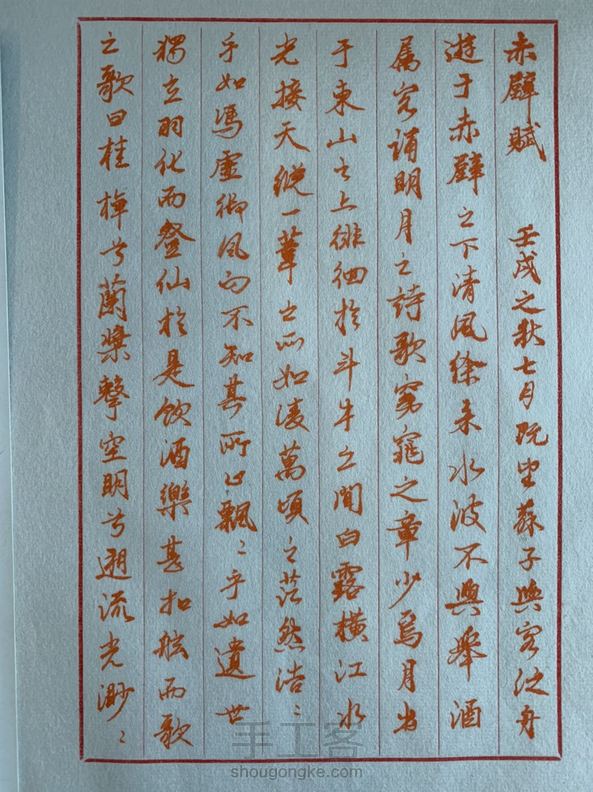 赤壁賦 壬戌之秋七月既望蘇子與客泛舟
遊于赤壁之下清風徐来水波不興舉酒
属客誦明月之詩歌窈窕之章少焉月出
于東山之上徘徊於斗牛之間白露橫江水
光接天縱一葦之所如凌萬頃之茫然浩〻
乎如馮虛御風而不知其所止飄〻乎如遺世
獨立羽化而登仙於是飲酒樂甚扣舷而歌
之歌曰桂棹兮蘭槳擊空明兮遡流光渺〻
手工客
shougongke.com